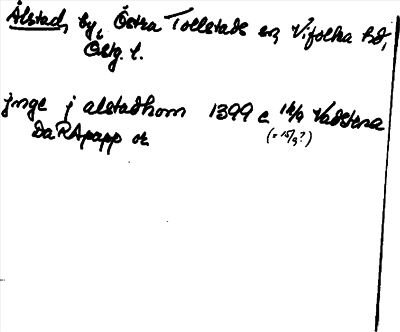 Ålstad, by, Östra Tollstads sn, Vifolka hd,
Östg. l.
jnge j alstadhom 1399 c 16/9 Vadstena
DaRApapp or. (=15/9?)